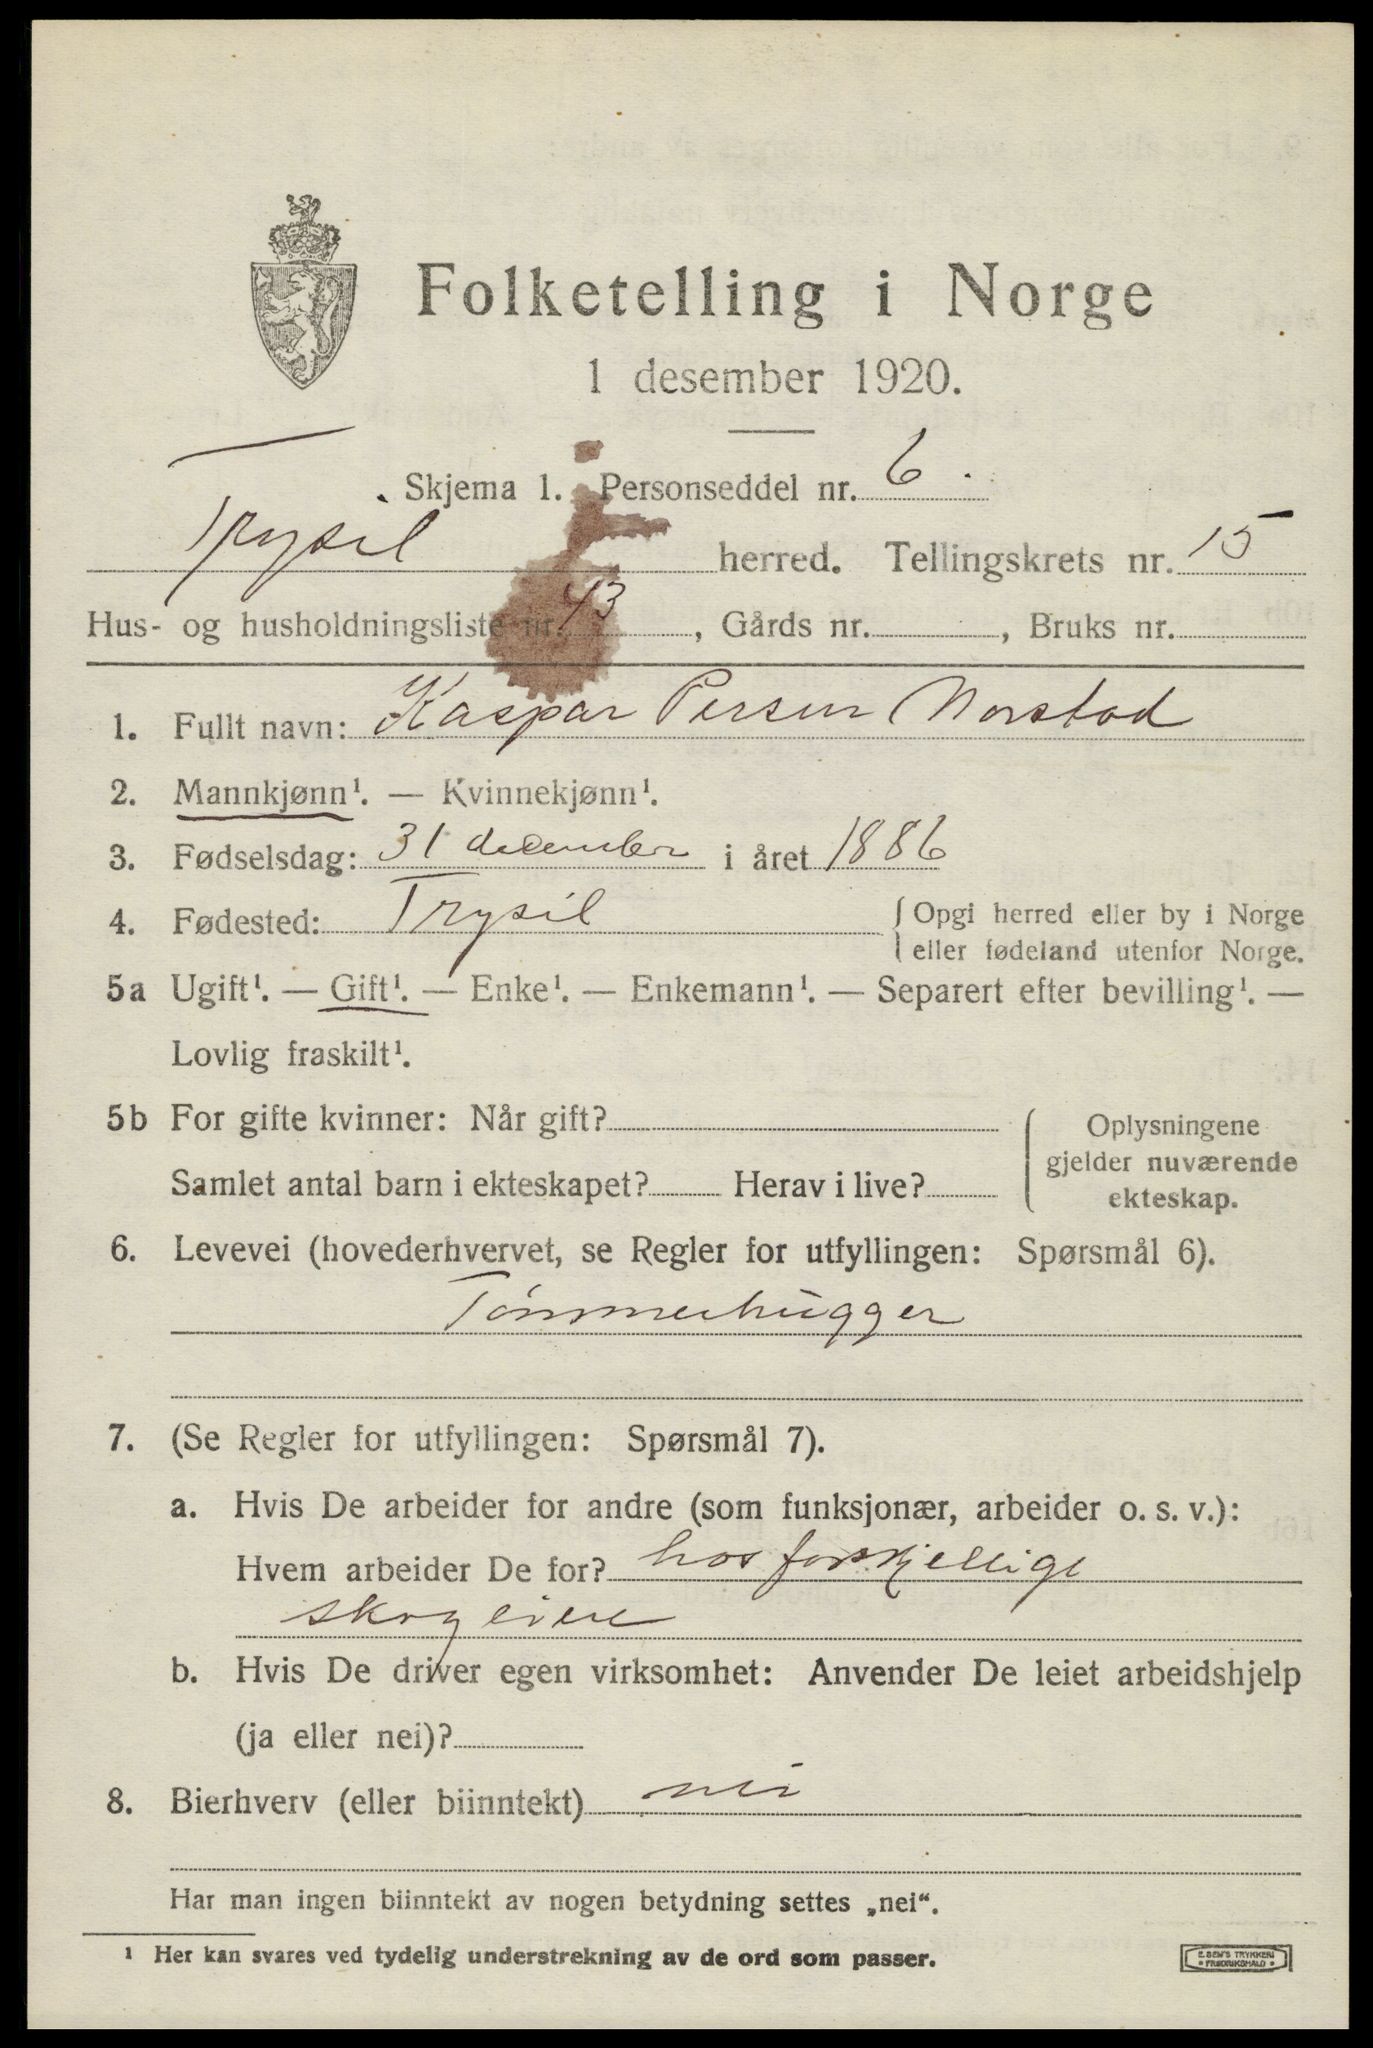 Folketelling i Norge
1 desember 1920.
Skjema 1. Personseddel nr. 6.
Trysil herred. Tellingskrets nr. 15
Hus- og husholdningsliste nr. 43, Gårds nr. , Bruks nr.
1. Fullt navn: Kaspar Persen Norstad
2. Mannkjønn¹. — Kvinnekjønn¹.
3. Fødselsdag: 31 december i året 1886
4. Fødested: Trysil { Opgi herred eller by i Norge
eller fødeland utenfor Norge.
5a Ugift¹. — Gift¹. — Enke¹. — Enkemann¹. — Separert efter bevilling¹. —
Lovlig fraskilt¹.
5b For gifte kvinner: Når gift?
Samlet antal barn i ekteskapet? Herav i live?
Oplysningene
gjelder nuværende
ekteskap.
6. Levevei (hovederhvervet, se Regler for utfyllingen: Spørsmål 6).
Tømmerhugger
7. (Se Regler for utfyllingen: Spørsmål 7).
a. Hvis De arbeider for andre (som funksjonær, arbeider o. s. v.):
Hvem arbeider De for? hos forskjellige
skogeiere
b. Hvis De driver egen virksomhet: Anvender De leiet arbeidshjelp
(ja eller nei)?
8. Bierhverv (eller biinntekt) nei
Har man ingen biinntekt av nogen betydning settes „nei“.
¹ Her kan svares ved tydelig understrekning av de ord som passer.
E. SEM'S TRYKKERI
FREDRIKSHALD